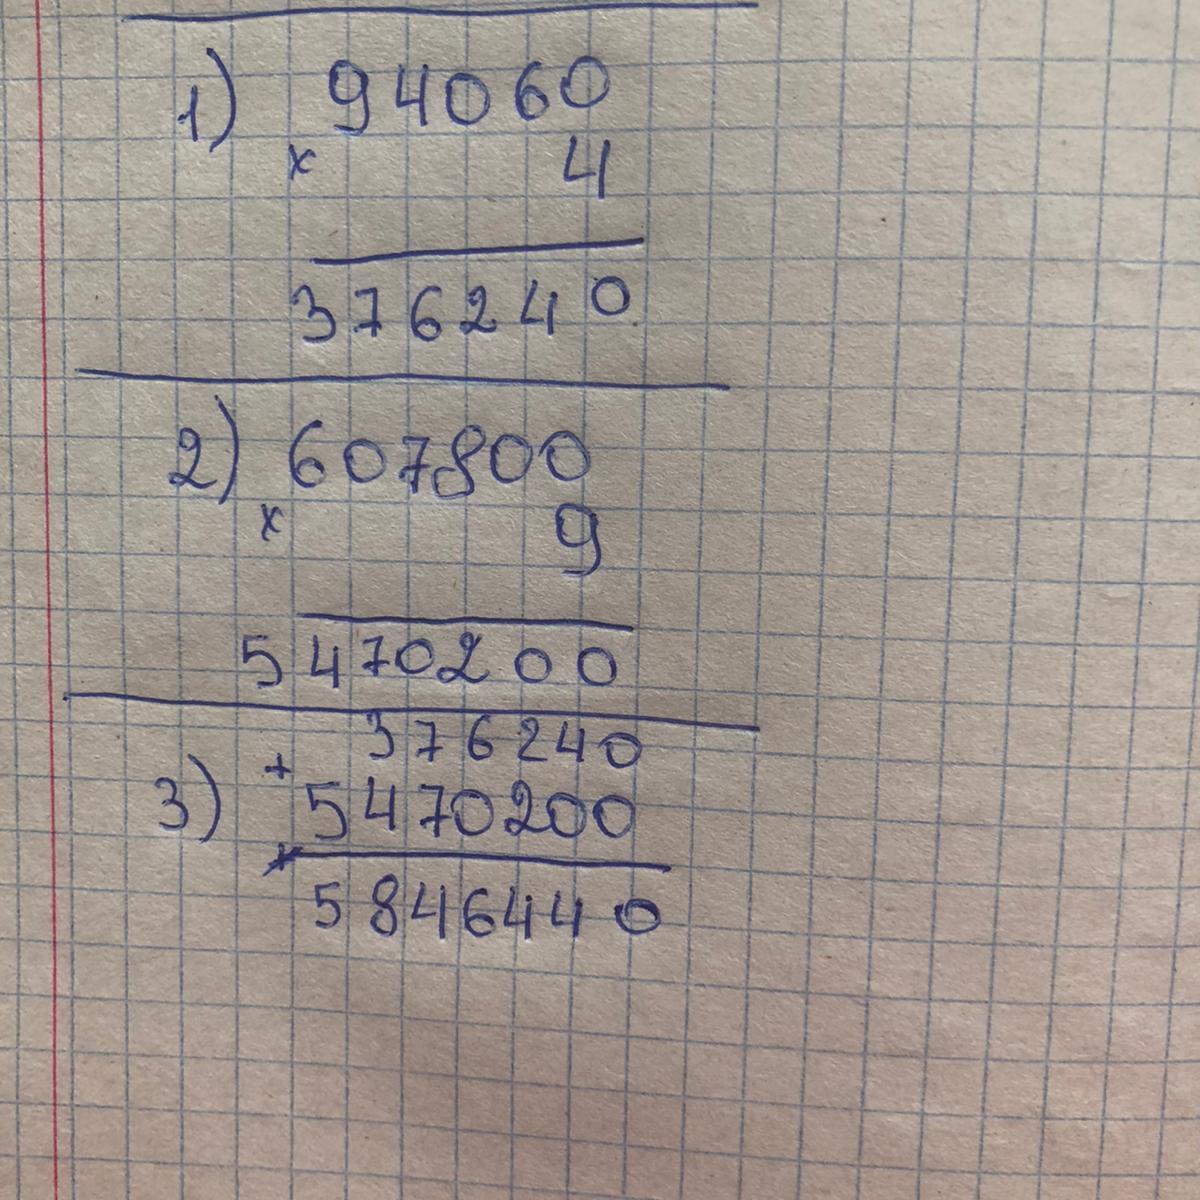 1) 94060
× 4
376240
2) 607800
× 9
5470200
376240
+
3) 5470200
5846440